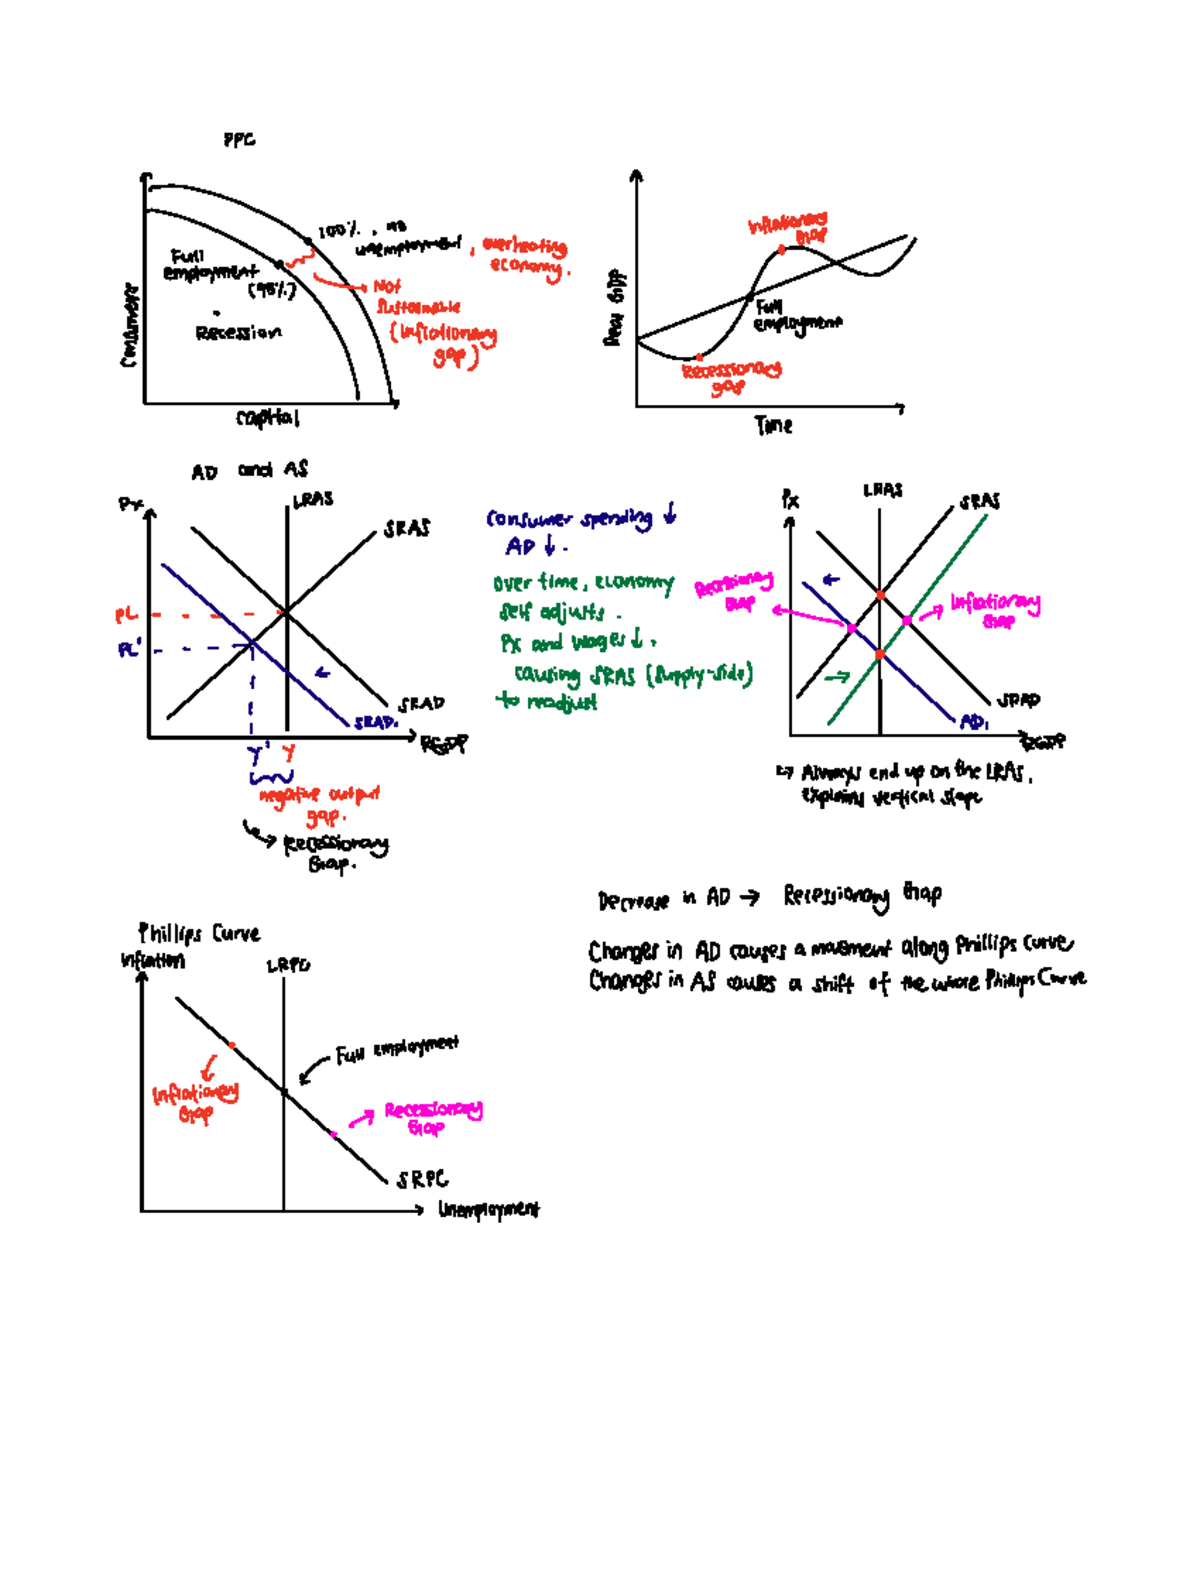 PPC
100%, no
unemployment, overheating
economy.
Full
employment
(95%)
Not
sustainable
(Inflationary
gap)
Recession
Consumer
Capital
Inflationary
Gap
Real GDP
Full
employment
Recessionary
gap
Time
AD and AS
Px
LRAS
SRAS
PL
PL'
SRAD
SRAD₁
RGDP
Y' Y
negative output
gap.
Recessionary
Gap.
Consumer spending ↓
AD ↓.
Over time, economy
self adjusts.
Px and wages ↓.
causing SRAS (supply-side)
to readjust
Px
LRAS
SRAS
Recessionary
Gap
Inflationary
Gap
SRAD
AD₁
RGDP
↳ Always end up on the LRAS,
explains vertical slope
Decrease in AD → Recessionary Gap
Changes in AD causes a movement along Phillips Curve
Changes in AS causes a shift of the whole Phillips Curve
Phillips Curve
Inflation
LRPC
Full employment
Inflationary
Gap
Recessionary
Gap
SRPC
Unemployment